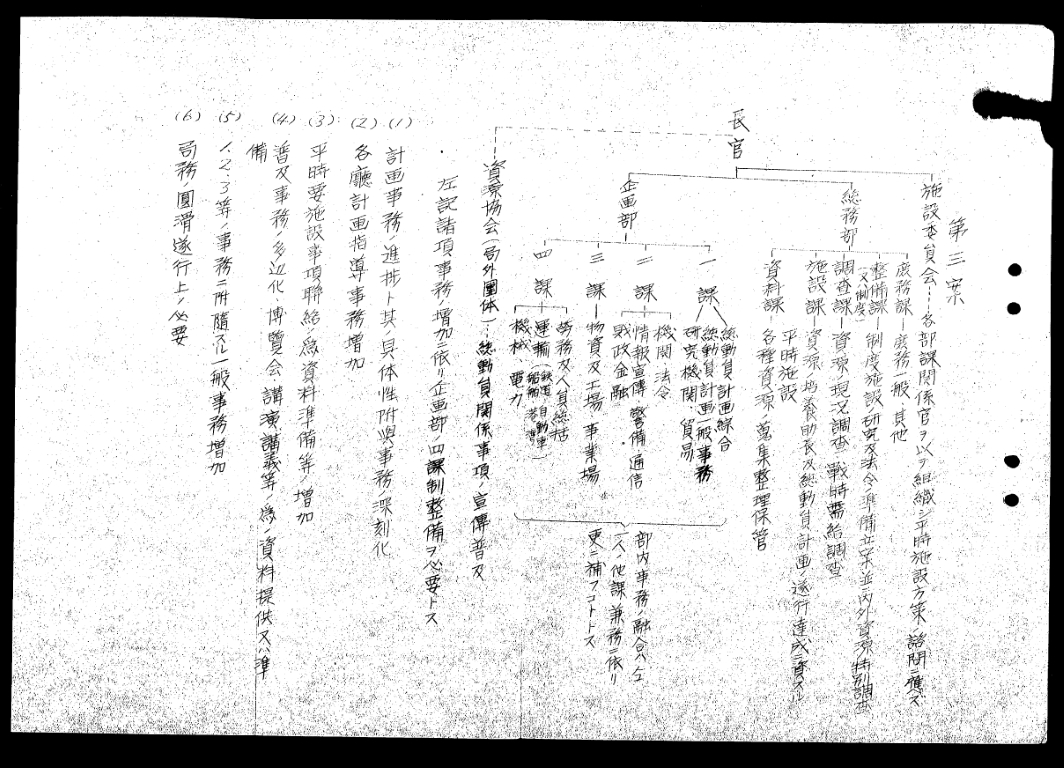 第三案
長官
施設委員会……各部課関係官ヲ以テ組織シ平時施設方策ノ諮問ニ應ズ
総務部
庶務課―庶務一般、其他
整備課―制度施設ノ研究及法令ノ準備立案並内外資源特別調査
(又ハ制度)
調査課―資源ノ現況調査、戦時需給調査
施設課―資源ノ培養助長及総動員計画ノ遂行達成ニ資スル
平時施設
資料課―各種資源ノ蒐集整理保管
企画部
一課
総動員計画綜合
総動員計画一般事務
研究機関、貿易
二課
機関、法令
情報宣傳、警備、通信
財政金融
三課―物資及工場、事業場
四課
労務及人員総括
運輸(鉄道、自動車
船舶、港湾)
機械、電力
部内事務ノ融合ハ各
一人ノ他課兼務ニ依リ
更ニ補フコトトス
資源協会(局外團体)…総動員関係事項ノ宣傳普及
左記諸項事務ノ増加ニ依リ企画部ノ四課制整備ヲ必要トス
(1) 計画事務ノ進捗ト其ノ具体性附與事務ノ深刻化
(2) 各廳計画指導事務増加
(3) 平時要施設事項聯絡ノ為資料準備等ノ増加
(4) 普及事務ノ多辺化、博覧会、講演、講義等ノ為ノ資料提供又ハ準
備
(5) 1、2、3等ノ事務ニ附隨スル一般事務増加
(6) 局務ノ圓滑遂行上ノ必要